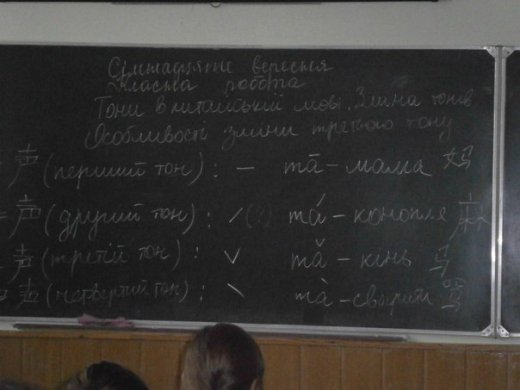 Сімнадцяте вересня
Класна робота
Тони в китайській мові. Зміна тонів
Особливості зміни третього тону
一声 (перший тон) : – mā – мама 妈
二声 (другий тон) : ˊ (!) má – конопля 麻
三声 (третій тон) : ˇ mǎ – кінь 马
四声 (четвертий тон) : ˋ mà – сварити 骂